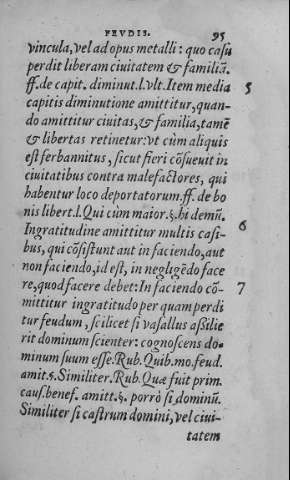 FEVDIS. 95
vincula, vel ad opus metalli: quo casu
perdit liberam ciuitatem & familiã.
ff. de capit. diminut. l. vlt. Item media 5
capitis diminutione amittitur, quan-
do amittitur ciuitas, & familia, tamẽ
& libertas retinetur: vt cùm aliquis
est ferbannitus, sicut fieri cõsueuit in
ciuitatibus contra malefactores, qui
habentur loco deportatorum. ff. de bo
nis libert. l. Qui cùm maior. §. hi demũ.
Ingratitudine amittitur multis casi- 6
bus, qui cõsistunt aut in faciendo, aut
non faciendo, id est, in negligẽdo face
re, quod facere debet: In faciendo cõ- 7
mittitur ingratitudo per quam perdi
tur feudum, scilicet si vasallus assilie
rit dominum scienter: cognoscens do-
minum suum esse. Rub. Quib. mo. feud.
amit. §. Similiter. Rub. Quæ fuit prim.
caus. benef. amitt. §. porrò si dominũ.
Similiter si castrum domini, vel ciui-
tatem